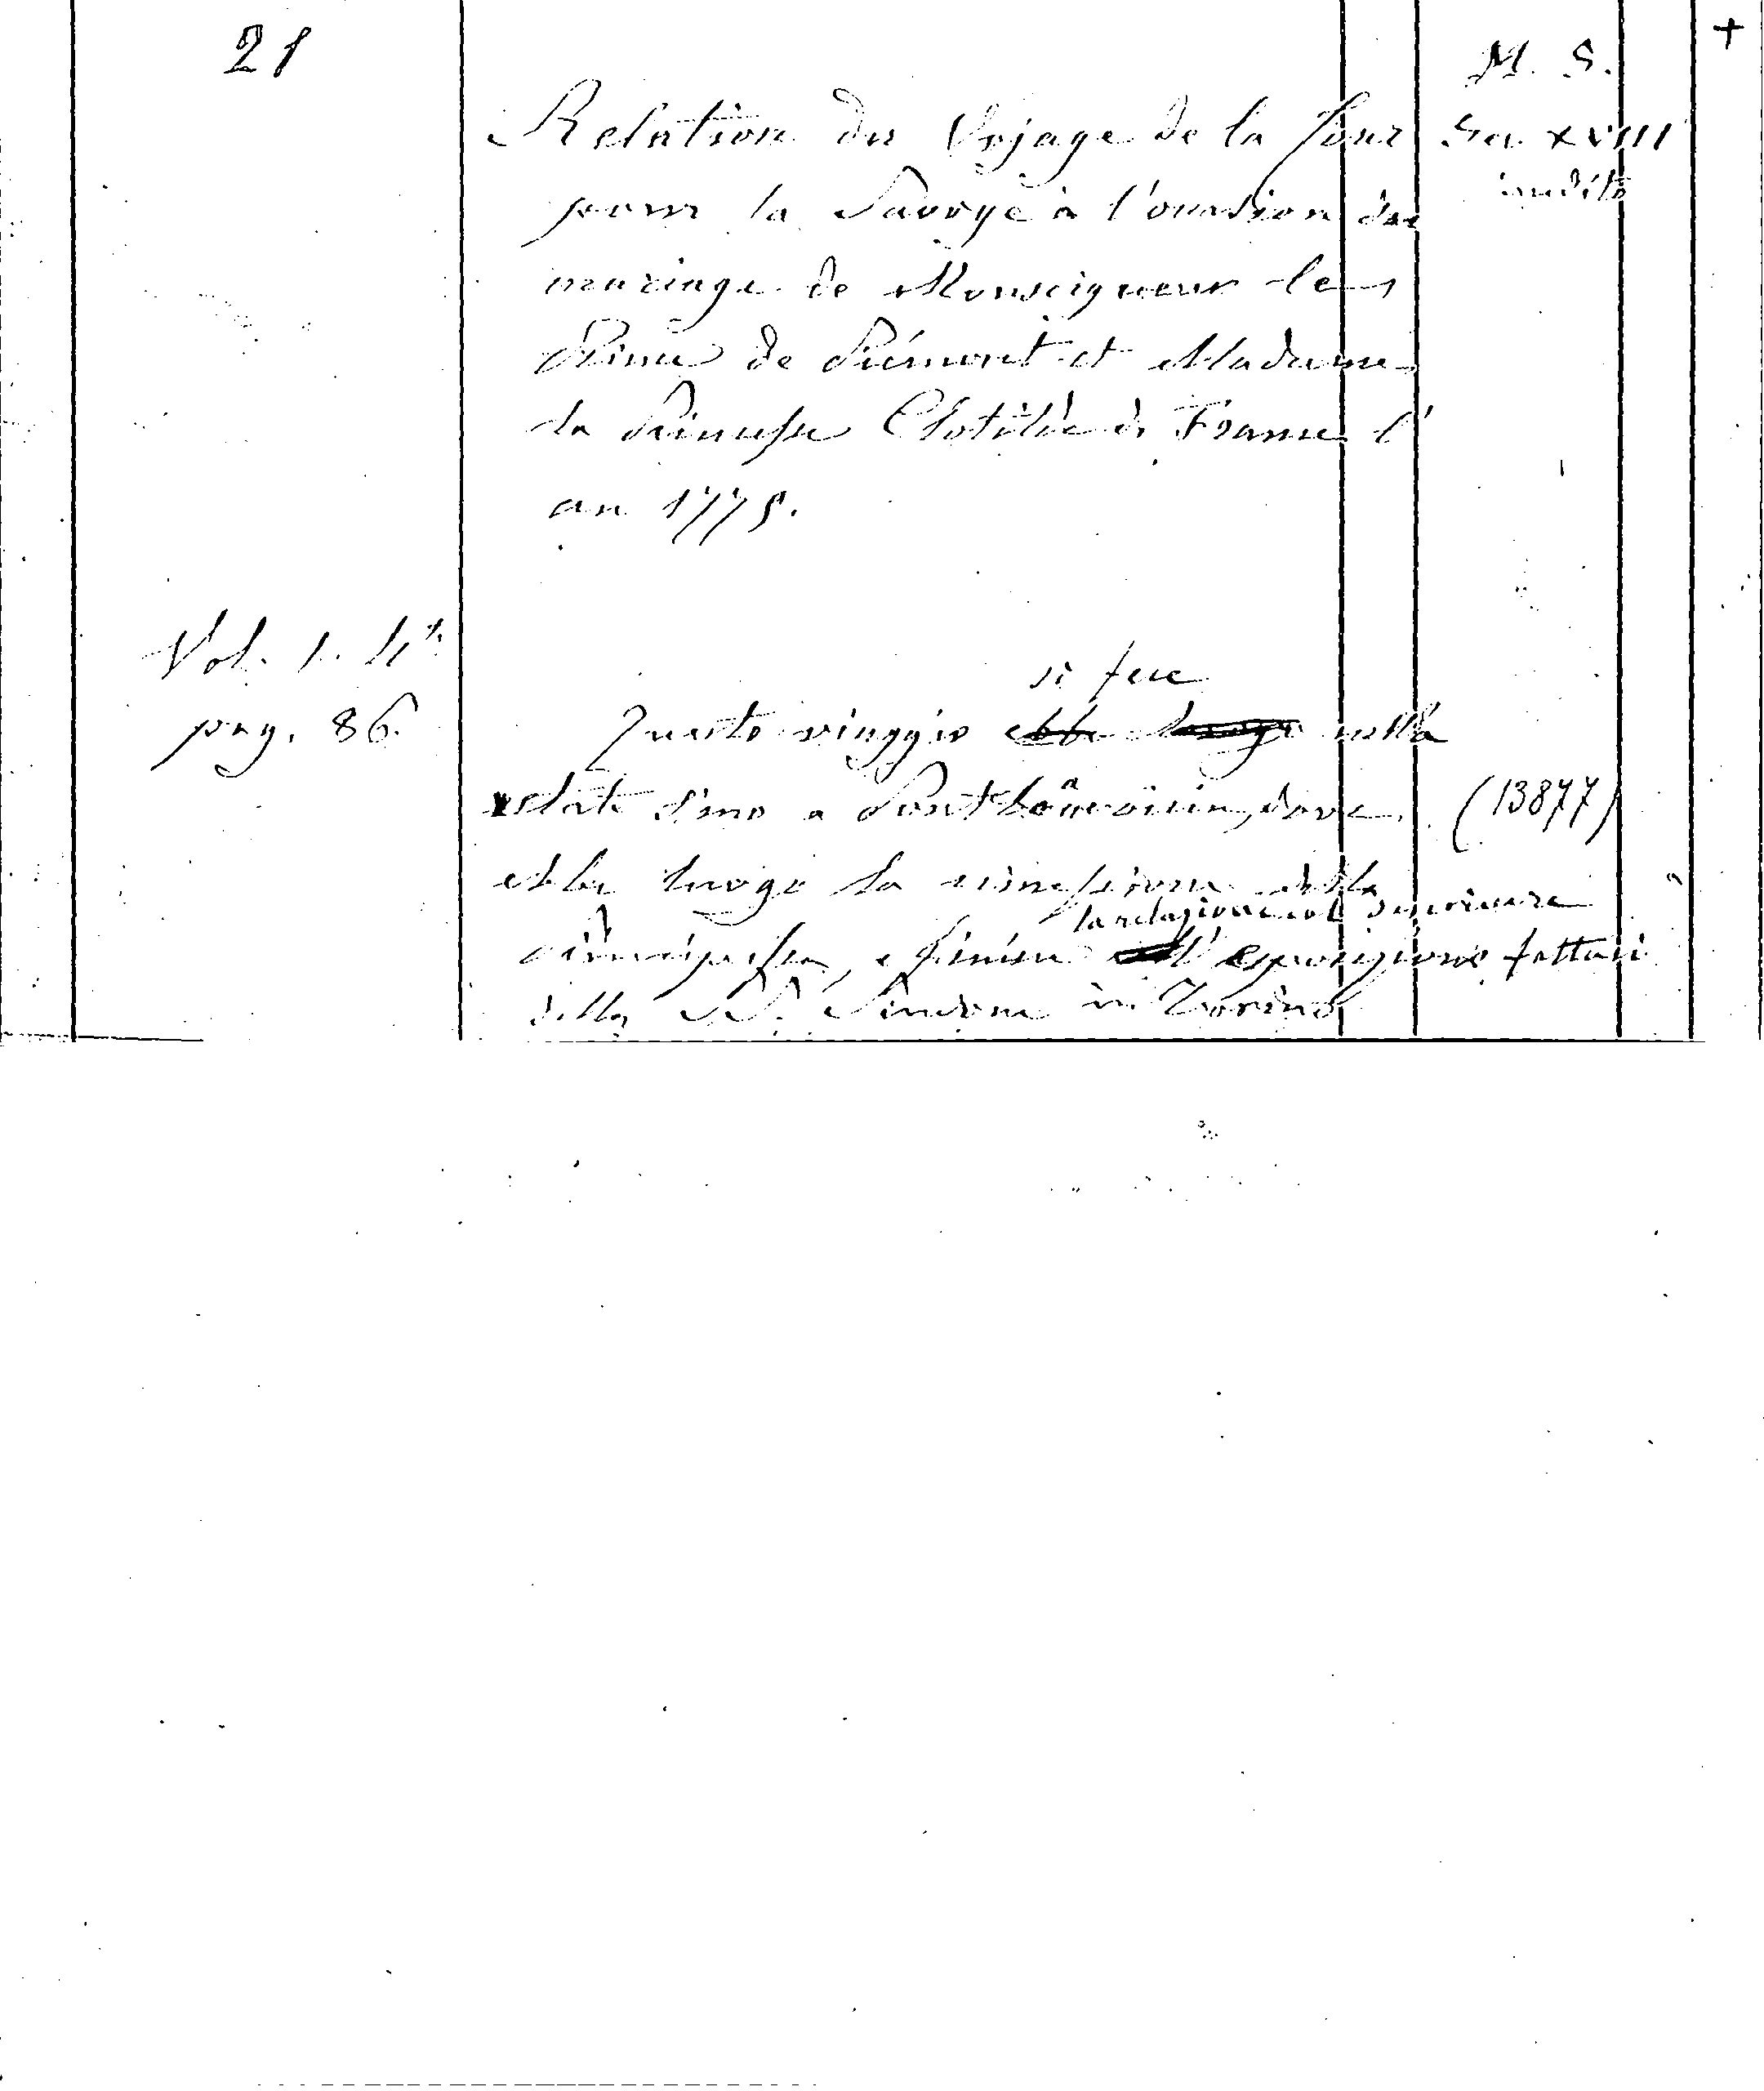 21
M. S.
+
Relation du Voyage de la Cour
Sec. XVIII
pour la Savoye à l'occasion du
inedito
mariage de Monseigneur le
Prince de Piémont et Madame
la Princesse Clotilde de France l'
an 1775.
Vol. 1. 4°
pag. 86.
si fece
Questo viaggio ebbe luogo nella
estate sino a Pont Beauvoisin, dove
(13877)
ebbe luogo la rimessione della
la relazione col descrivere
principessa, e finisce l'esposizione fattasi
della SS. Sindone in Torino